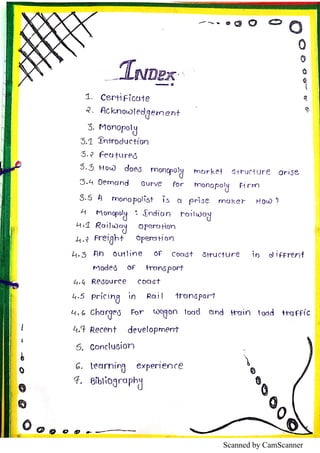 INDEX
1. Certificate
2. Acknowledgement
3. Monopoly
3.1 Introduction
3.2 Features
3.3 How does monopoly market structure arise
3.4 Demand curve for monopoly Firm
3.5 A monopolist is a prise maker How?
4 Monopoly : Indian railway
4.1 Railway operation
4.2 Freight operation
4.3 An outline of coast structure in differenf
modes of transport
4.4 Resource coast
4.5 pricing in Rail transport
4.6 Charges For wagon load and train load traffic
4.7 Recent development
5. Conclusion
6. learning experience
7. Bibliography
Scanned by CamScanner